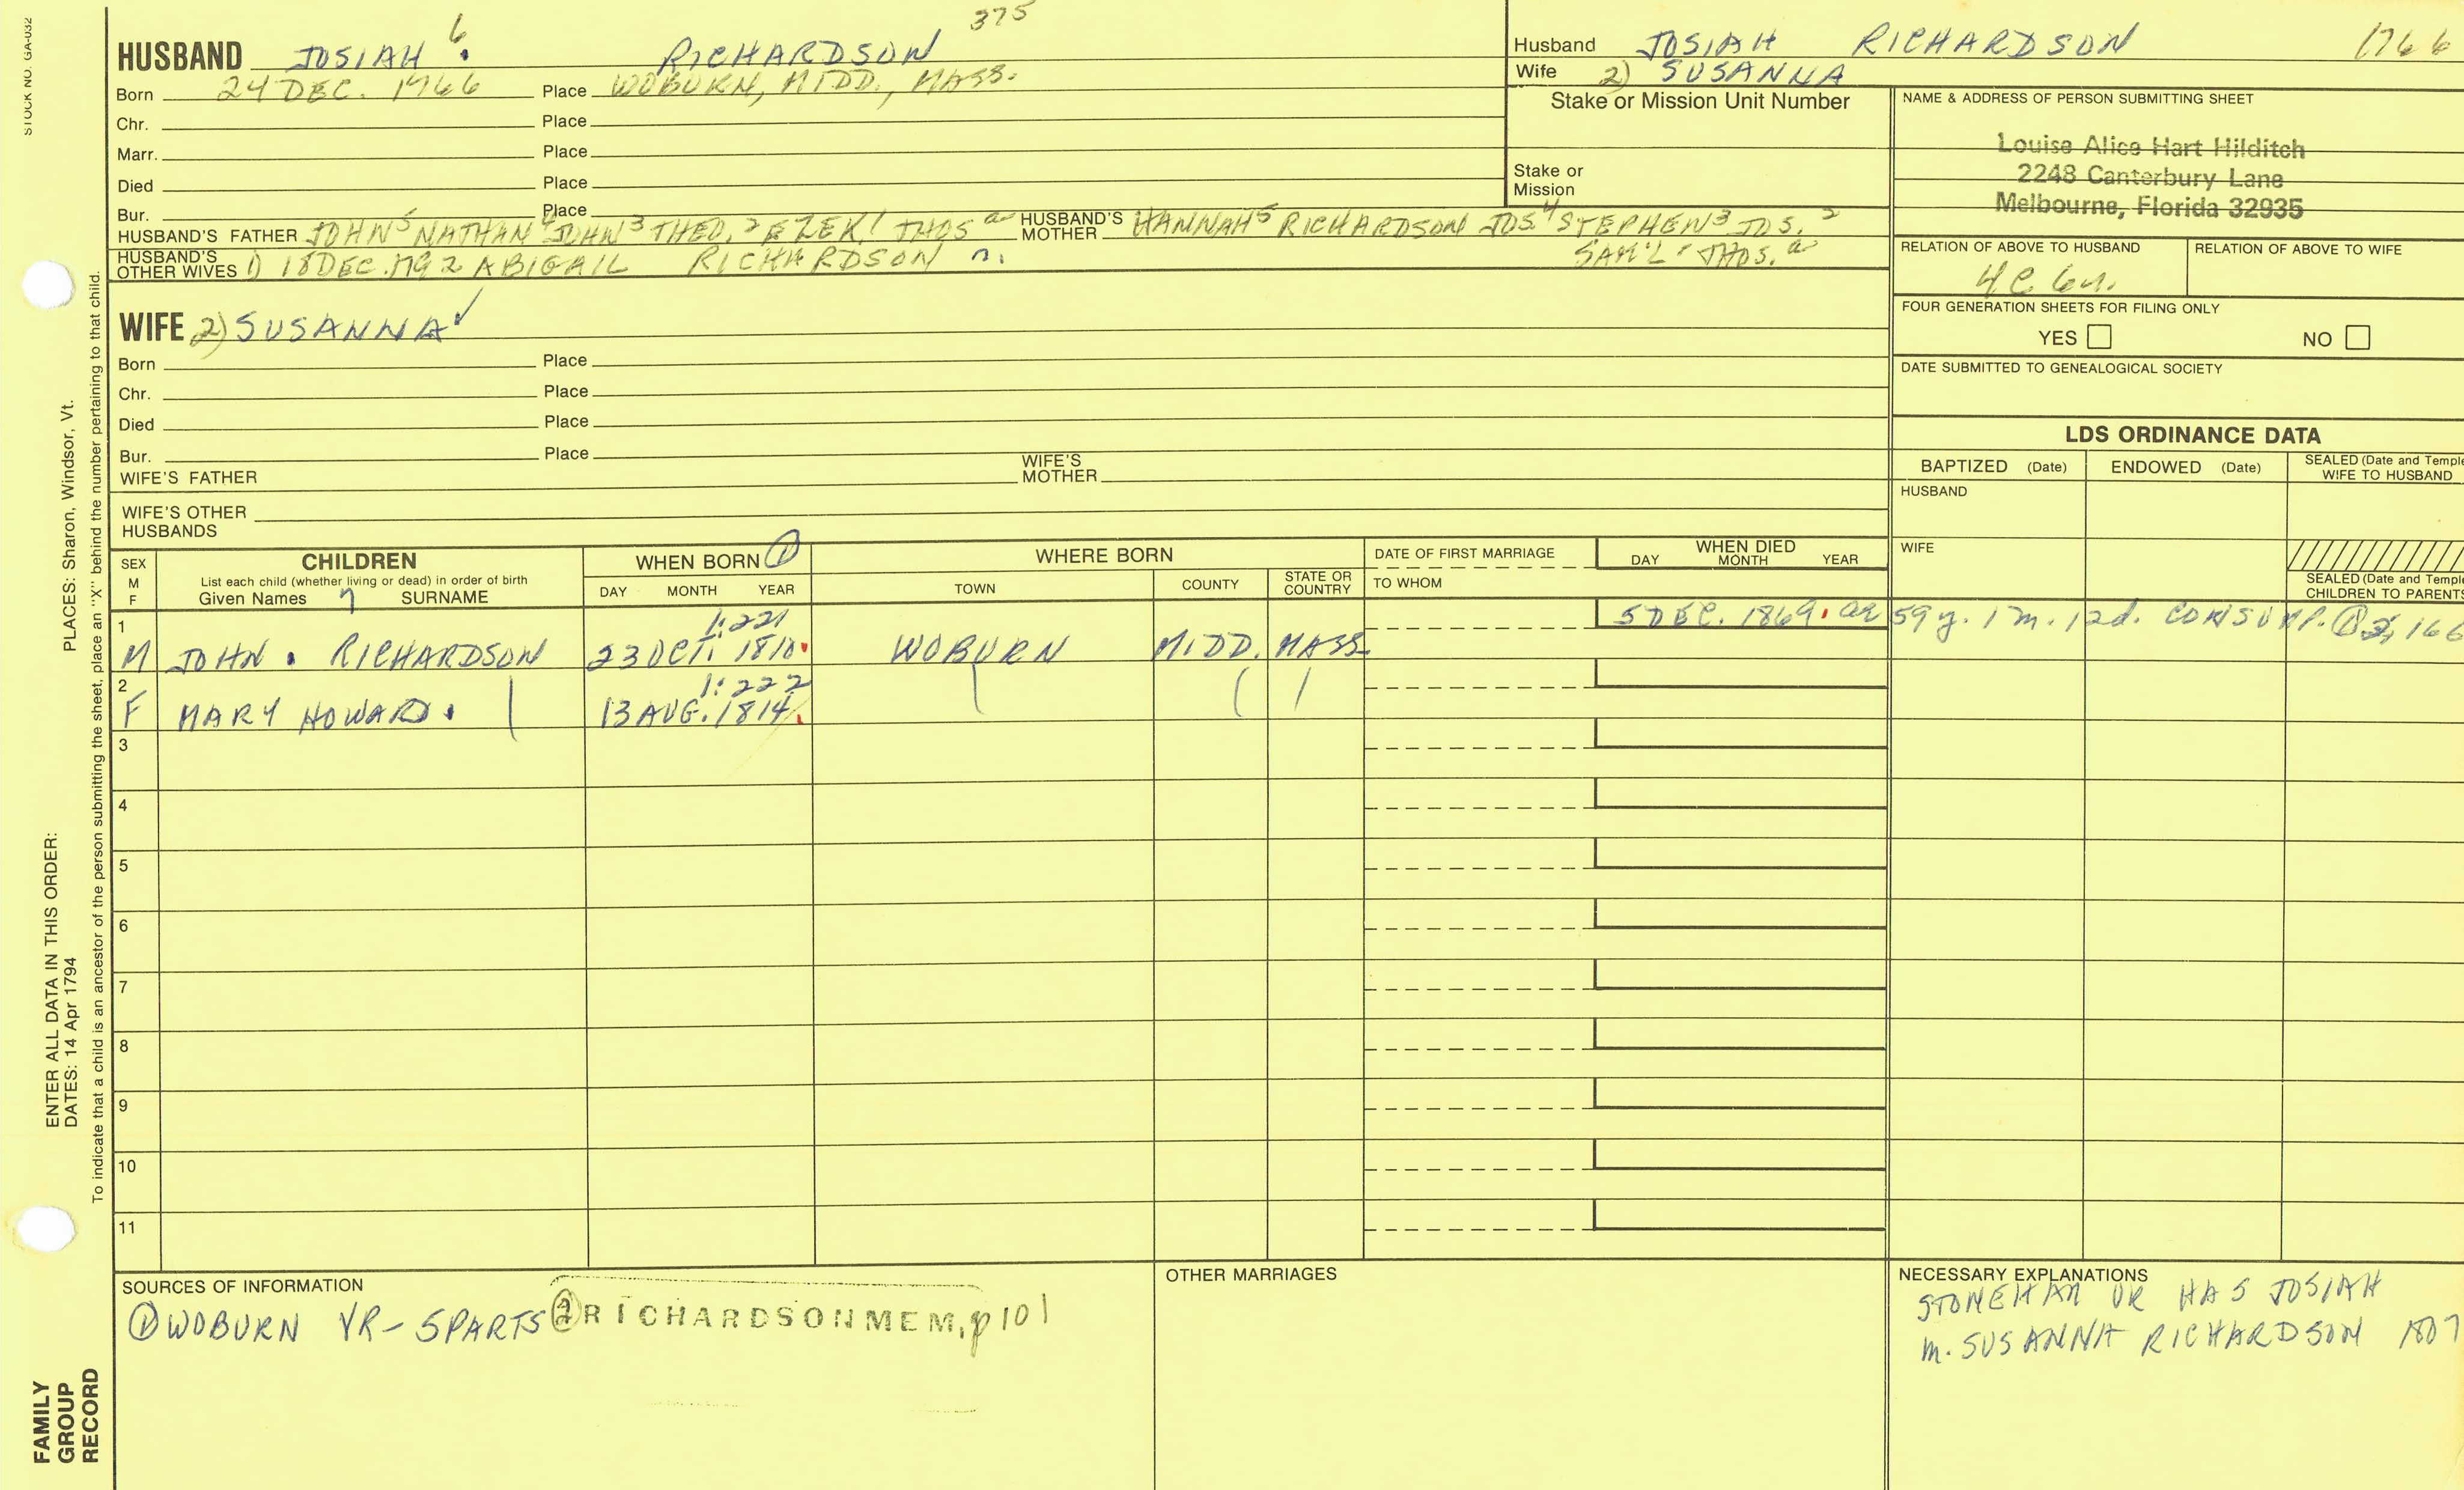 STOCK NO. GA-032
375
HUSBAND JOSIAH 6 . RICHARDSON
Born 24 DEC. 1766 Place WOBURN, MIDD., MASS.
Chr. Place
Marr. Place
Died Place
Bur. Place
HUSBAND'S FATHER JOHN 5 NATHAN 4 JOHN 3 THEO. 2 EZEK. 1 THOS a HUSBAND'S MOTHER HANNAH 5 RICHARDSON JOS. 4 STEPHEN 3 JOS. 2
SAM'L 1 THOS. a
HUSBAND'S OTHER WIVES 1) 18 DEC. 1792 ABIGAIL RICHARDSON n.
Husband JOSIAH RICHARDSON 1766
Wife 2) SUSANNA
Stake or Mission Unit Number
Stake or Mission
NAME & ADDRESS OF PERSON SUBMITTING SHEET
Louise Alice Hart Hilditch
2248 Canterbury Lane
Melbourne, Florida 32935
RELATION OF ABOVE TO HUSBAND RELATION OF ABOVE TO WIFE
4C 6r.
FOUR GENERATION SHEETS FOR FILING ONLY
YES NO
DATE SUBMITTED TO GENEALOGICAL SOCIETY
WIFE 2) SUSANNA ✓
Born Place
Chr. Place
Died Place
Bur. Place
WIFE'S FATHER WIFE'S MOTHER
WIFE'S OTHER HUSBANDS
LDS ORDINANCE DATA
BAPTIZED (Date) ENDOWED (Date) SEALED (Date and Temple
WIFE TO HUSBAND
HUSBAND
WIFE
SEALED (Date and Temple
CHILDREN TO PARENTS
SEX M F
CHILDREN
List each child (whether living or dead) in order of birth
Given Names 7 SURNAME
WHEN BORN ①
DAY MONTH YEAR
WHERE BORN
TOWN COUNTY STATE OR COUNTRY
DATE OF FIRST MARRIAGE
TO WHOM
WHEN DIED
DAY MONTH YEAR
1 1:221 5 DEC. 1869. ae 59 y. 1 m. 12d. CONSUMP. ① 2, 166
M JOHN . RICHARDSON 23 OCT. 1810. WOBURN MIDD. MASS.
2 1:222
F MARY HOWARD. 13 AUG. 1814.
3
4
5
6
7
8
9
10
11
SOURCES OF INFORMATION
① WOBURN VR - 5 PARTS ② RICHARDSON MEM, p 101
OTHER MARRIAGES
NECESSARY EXPLANATIONS
STONEHAM VR HAS JOSIAH
m. SUSANNA RICHARDSON 1807
PLACES: Sharon, Windsor, Vt.
ENTER ALL DATA IN THIS ORDER:
DATES: 14 Apr 1794
To indicate that a child is an ancestor of the person submitting the sheet, place an "X" behind the number pertaining to that child.
FAMILY
GROUP
RECORD